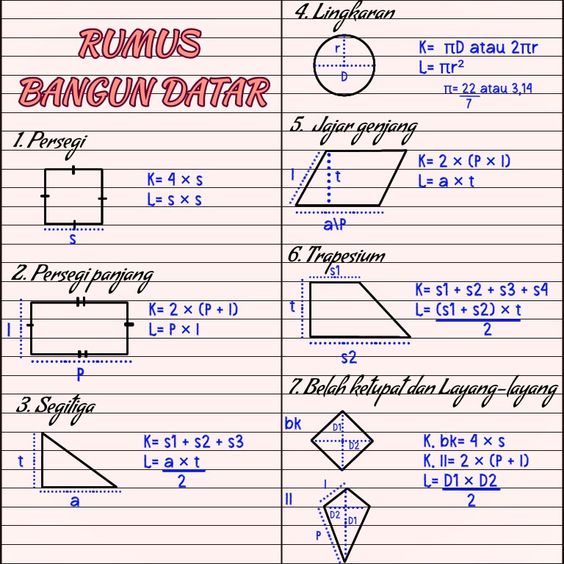 RUMUS
BANGUN DATAR
1. Persegi
K= 4 × s
L= s × s
s
2. Persegi panjang
l
K= 2 × (P + l)
L= P × l
P
3. Segitiga
t
K= s1 + s2 + s3
L= a × t
2
a
4. Lingkaran
r
D
K= πD atau 2πr
L= πr²
π= 22 atau 3,14
7
5. Jajar genjang
l
t
K= 2 × (P × l)
L= a × t
a\P
6. Trapesium
s1
t
K= s1 + s2 + s3 + s4
L= (s1 + s2) × t
2
s2
7. Belah ketupat dan Layang-layang
bk
D1
D2
K. bk= 4 × s
K. ll= 2 × (P + l)
L= D1 × D2
2
ll
l
D2 D1
P